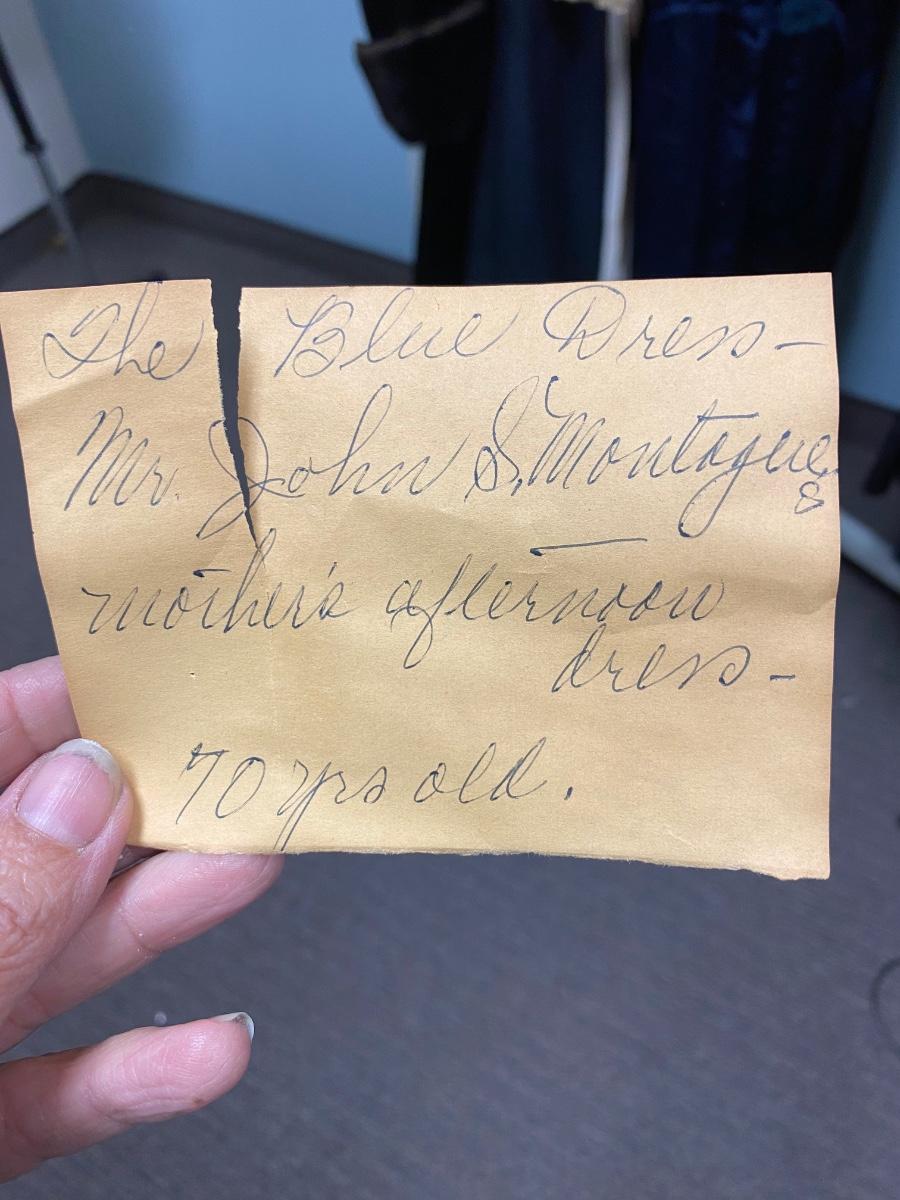 The Blue Dress —
Mr. John S. Montague's
mother's afternoon
dress —
70 yrs old.